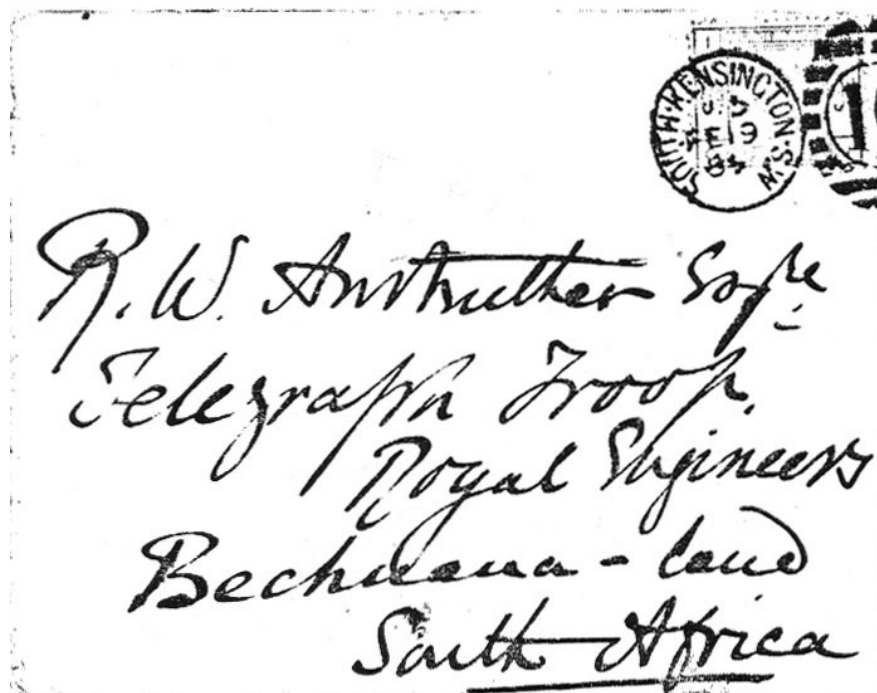 SOUTH·KENSINGTON·S.W.
FE 19
R. W. Anstruther Esqre
Telegraph Troop.
Royal Engineers
Bechuana-land
South Africa